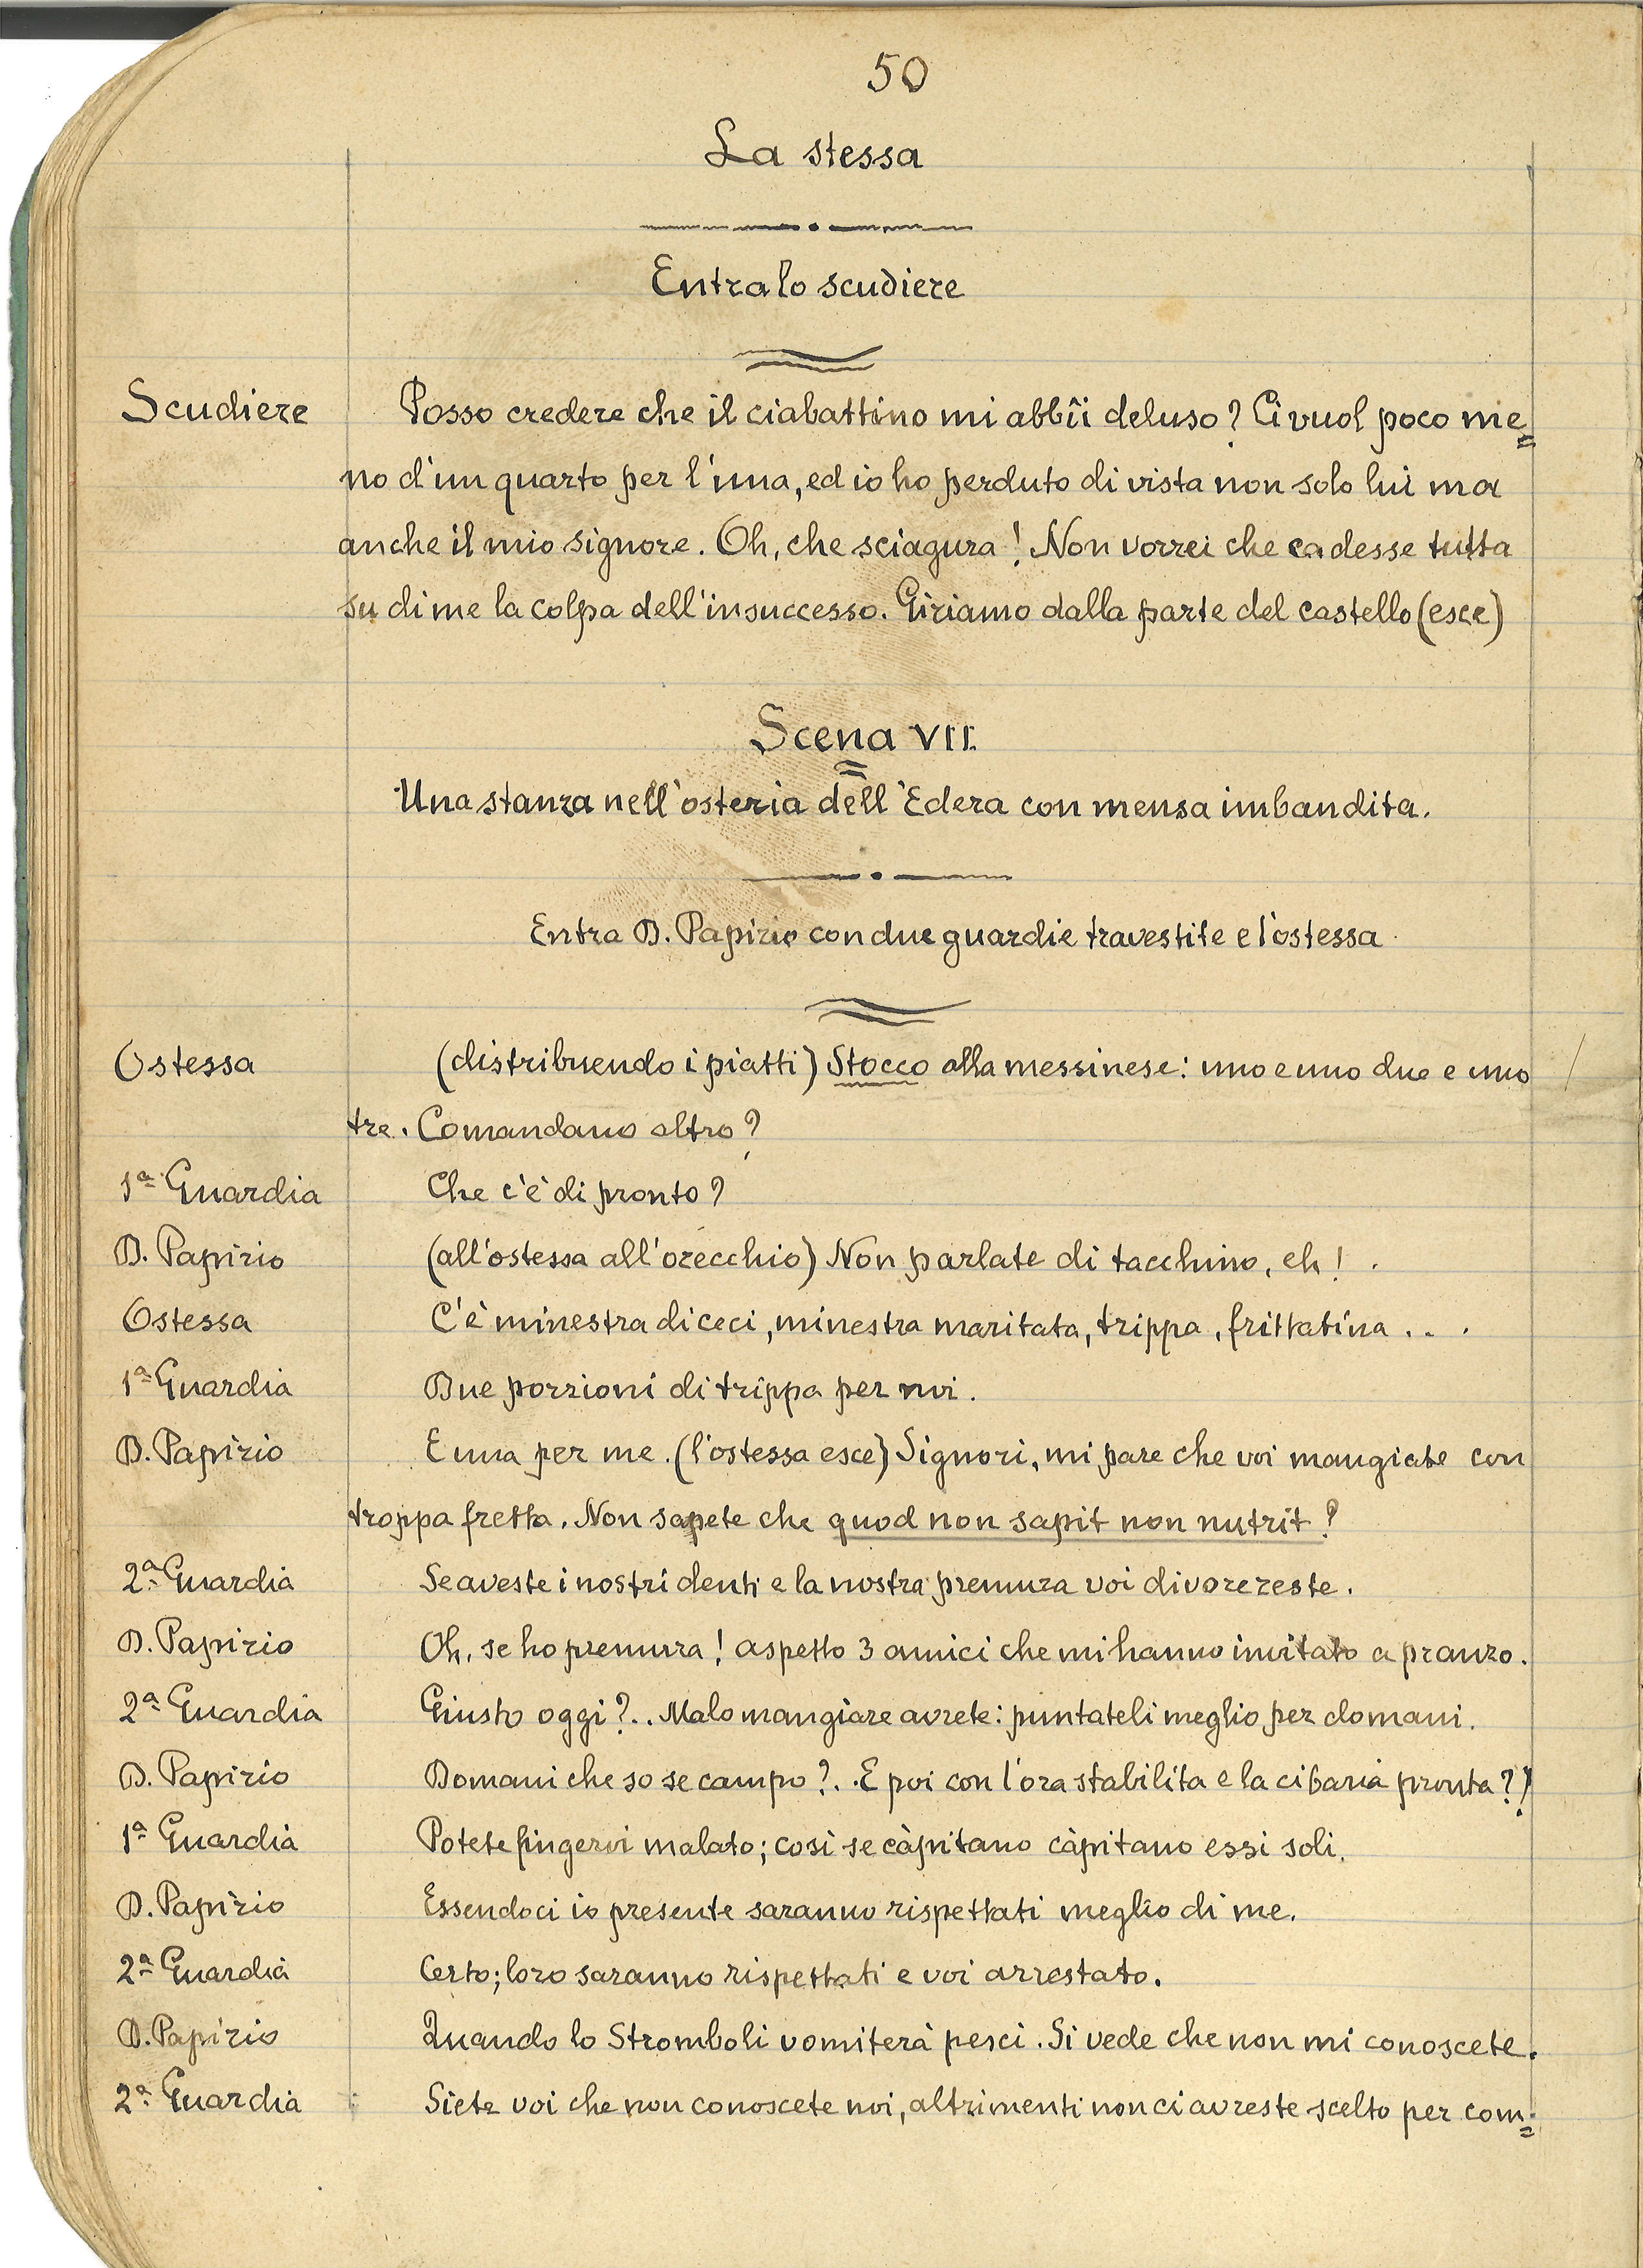 50
La stessa
Entra lo scudiere
Scudiere Posso credere che il ciabattino mi abbîi deluso? Ci vuol poco me=
no d'un quarto per l'una, ed io ho perduto di vista non solo lui ma
anche il mio signore. Oh, che sciagura! Non vorrei che cadesse tutta
su di me la colpa dell'insuccesso. Giriamo dalla parte del castello (esce)
Scena VII.
Una stanza nell'osteria dell'Edera con mensa imbandita.
Entra D. Papirio con due guardie travestite e l'ostessa.
Ostessa (distribuendo i piatti) Stocco alla messinese: uno e uno due e uno
tre. Comandano altro?
1ª Guardia Che c'è di pronto?
D. Papirio (all'ostessa all'orecchio) Non parlate di tacchino, eh!
Ostessa C'è minestra di ceci, minestra maritata, trippa, frittatina . . .
1ª Guardia Due porzioni di trippa per noi.
D. Papirio E una per me. (l'ostessa esce) Signori, mi pare che voi mangiate con
troppa fretta. Non sapete che quod non sapit non nutrit?
2ª Guardia Se aveste i nostri denti e la nostra premura voi divorereste.
D. Papirio Oh, se ho premura! aspetto 3 amici che mi hanno invitato a pranzo.
2ª Guardia Giusto oggi?.. Malo mangiare avrete: puntateli meglio per domani.
D. Papirio Domani che so se campo?.. E poi con l'ora stabilita e la cibaria pronta?!
1ª Guardia Potete fingervi malato; così se càpitano càpitano essi soli.
D. Papirio Essendoci io presente saranno rispettati meglio di me.
2ª Guardia Certo; loro saranno rispettati e voi arrestato.
D. Papirio Quando lo Stromboli vomiterà pesci. Si vede che non mi conoscete.
2ª Guardia Siete voi che non conoscete noi, altrimenti non ci avreste scelto per com=